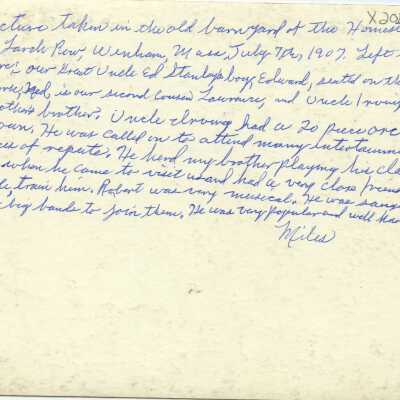 X202
cture taken in the old barn yard of the Homes
Larch Row, Wenham, Mass, July 7th, 1907. Left
our Great Uncle Ed Stanley's boy, Edward, seated on th
is our second cousin Lawrence, and Uncle Irving
other's brother. Uncle Irving had a 20 piece orc
own. He was called on to attend many entertainme
of repute. He herd my brother playing his cla
when he came to visit us and had a very close frien
train him. Robert was very musical. He was
big bands to join them. He was very popular and well
Miles